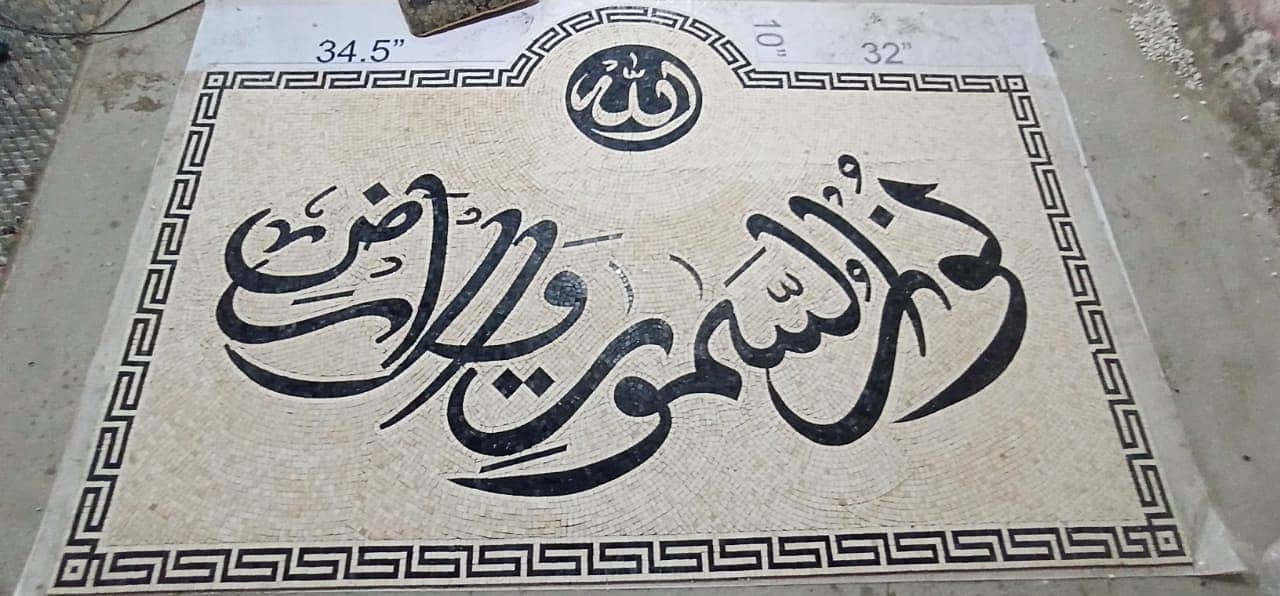 34.5” 10” 32”
الله
نُورُ السَّمٰوٰتِ وَالْاَرْضِ